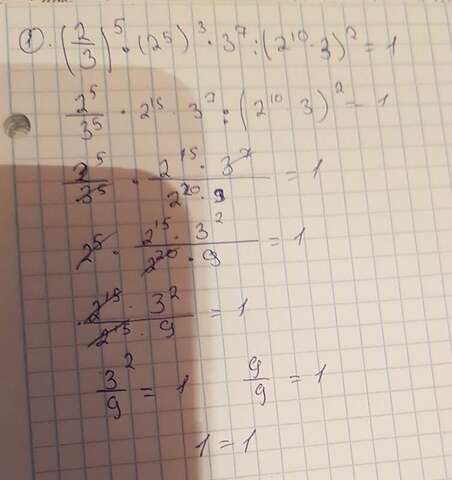 ① · (2/3)^5 · (2^5)^3 · 3^7 : (2^10 · 3)^2 = 1
2^5/3^5 · 2^15 · 3^7 : (2^10 · 3)^2 = 1
2^5/3^5 · (2^15 · 3^7)/(2^20 · 9) = 1
2^5 · (2^15 · 3^2)/(2^20 · 9) = 1
(2^15 · 3^2)/(2^15 · 9) = 1
3^2/9 = 1 9/9 = 1
1 = 1